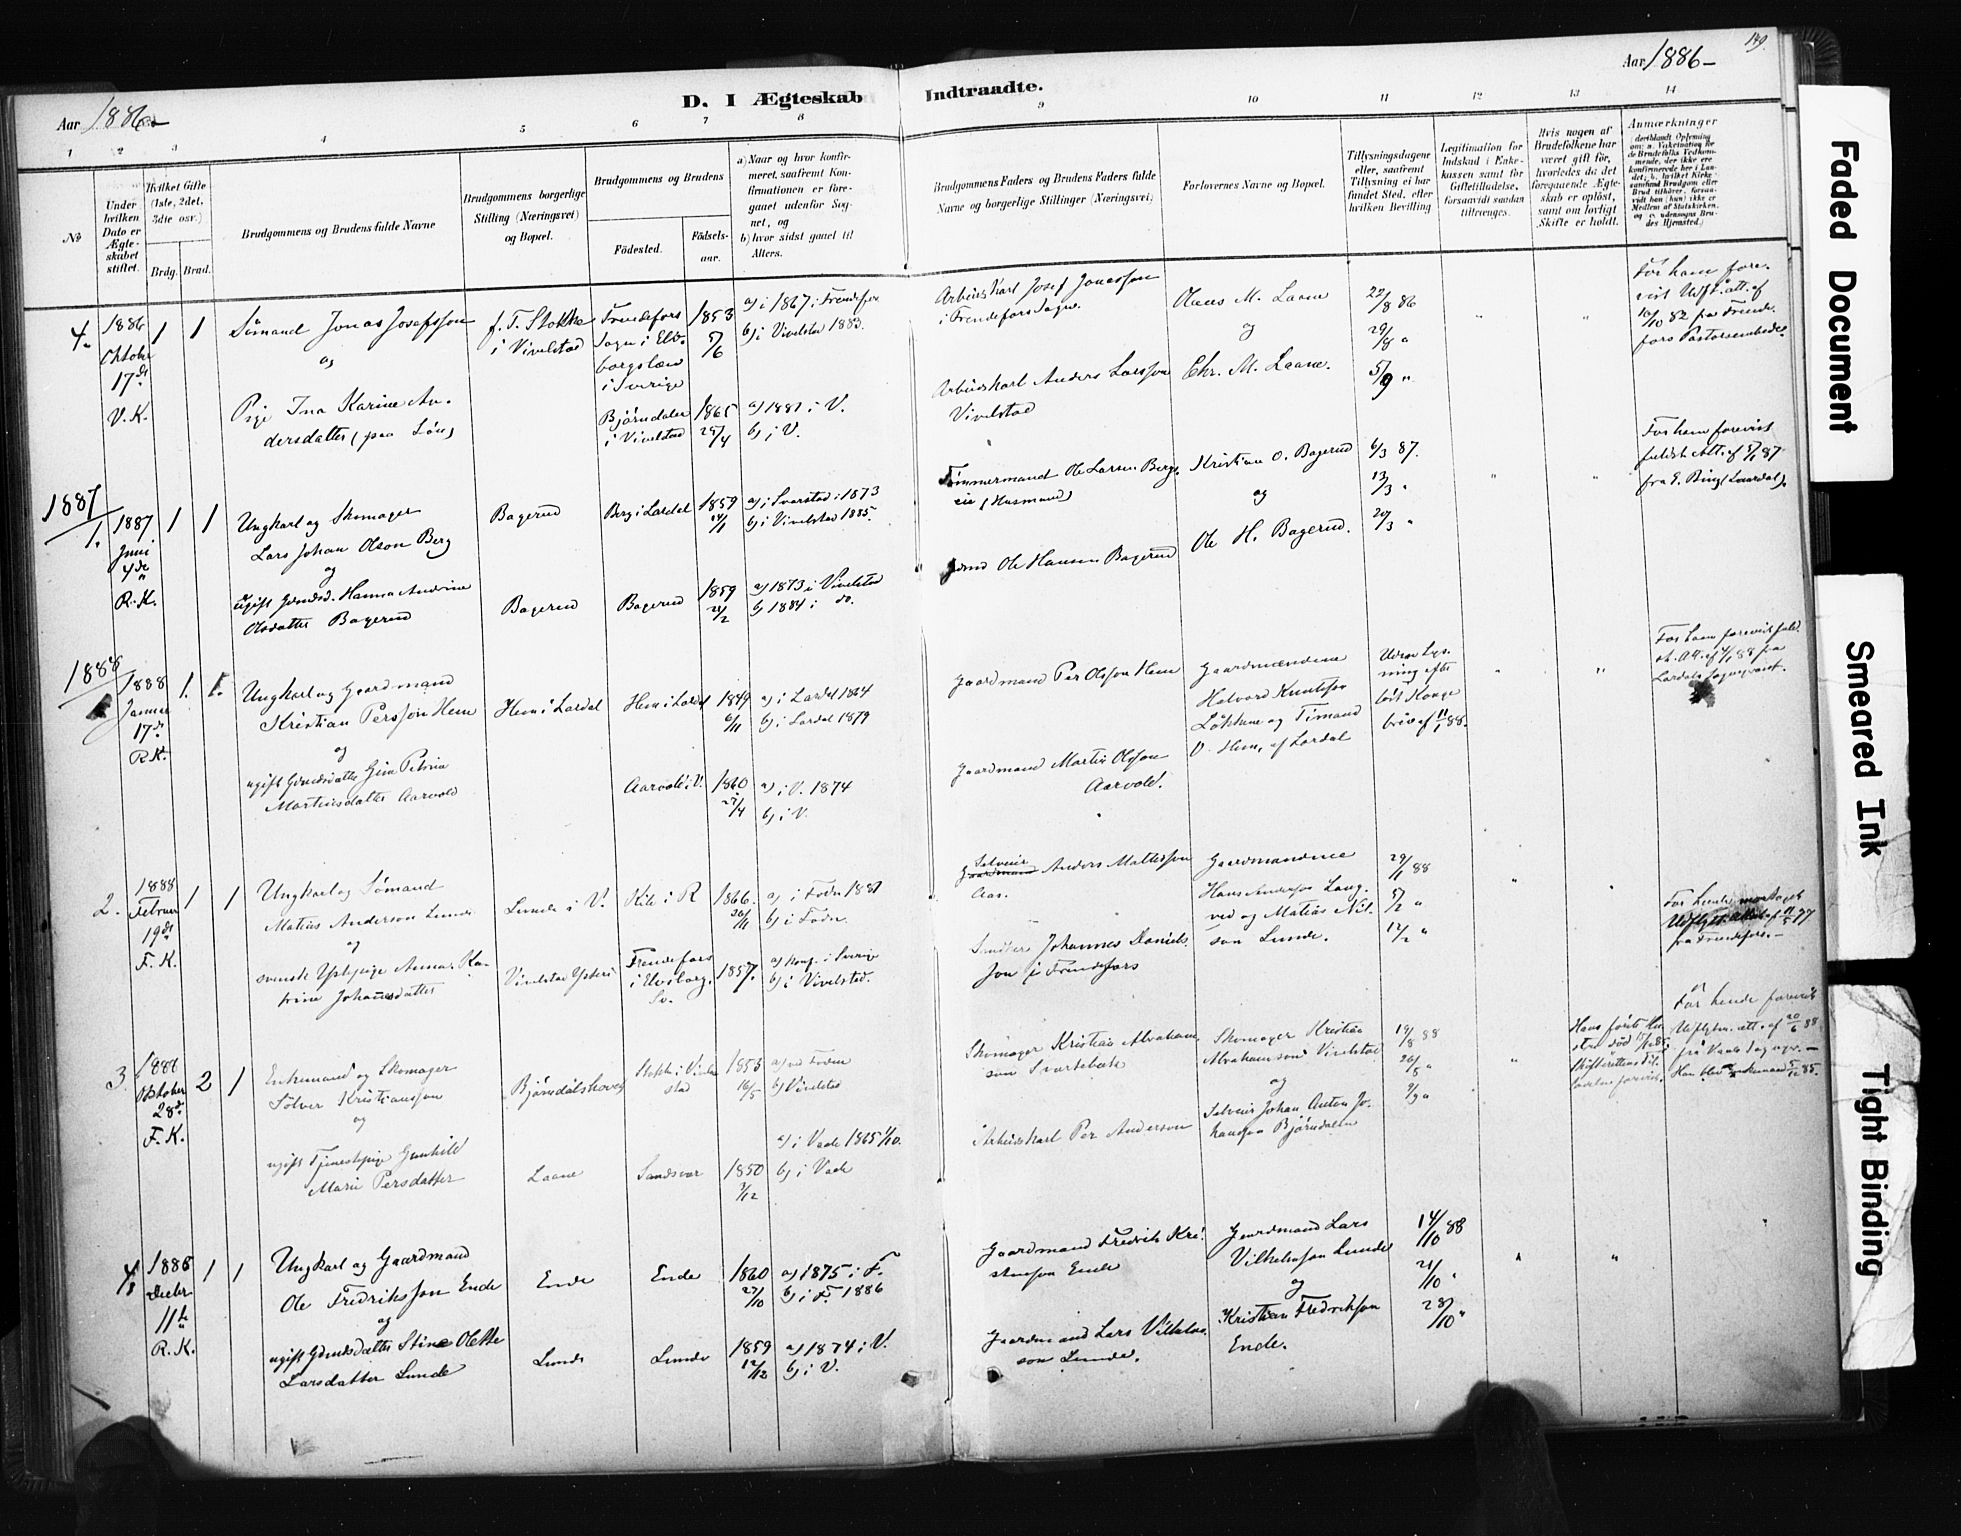 149.
Aar 1886-
Aar 1886-
D. I Ægteskab Indtraadte.
1 2 3 4 5 6 7 8 9 10 11 12 13 14
No
Under hvilken Dato er Ægteskabet stiftet.
Hvilket Gifte (1ste, 2det, 3dte osv.)
Brdg. Brud.
Brudgommens og Brudens fulde Navne
Brudgommens borgerlige Stilling (Næringsvei) og Bopæl.
Brudgommens og Brudens
Födested.
Födselsaar.
a) Naar og hvor konfirmeret, saafremt Konfirmationen er foregaaet udenfor Sognet, og
b) hvor sidst gaaet til Alters.
Brudgommens Faders og Brudens Faders fulde Navne og borgerlige Stillinger (Næringsvei)
Forlovernes Navne og Bopæl.
Tillysningsdagene eller, saafremt Tillysning ei har fundet Sted, efter hvilken Bevilling
Legitimation for Indskud i Enkekassen samt for Giftetilladelse, forsaavidt saadan tiltrænges.
Hvis nogen af Brudefolkene har været gift för, hvorledes da det foregaaende Ægteskab er oplöst, samt om lovligt Skifte er holdt.
Anmærkninger
4. 1886 Oktober 17de V.K. 1 1
Sömand Jonas Josefsson
og
Pige Ina Karine Andersdatter (paa Lön)
f. T. Stokke i Vivelstad
Frendefors Sogn i Elvborgslæn i Sverige
1853 5/6
a) i 1867 i Frendefors
b) i Vivelstad 1883.
Björndalen i Vivelstad
1865 25/4
a) 1881 i V.
b) i V.
Arbeidskarl Josef Jonasson i Frendefors Sogn.
Arbeidskarl Anders Larsson Vivelstad
Claus M. Laane
og
Chr. M. Laane.
22/8 86
29/8 "
5/9 "
For ham forevist Udfl. att. af 10/10 82 fra Frendefors Pastorsembede.
1887
1. 1887 Juni 4de R.K. 1 1
Ungkarl og Skomager
Lars Johan Olson Berg
og
ugift Gmdsd. Hanna Andrine
Olsdatter Bagerud
Bagerud
Berg i Lardal
1859
a) i Svarstad i 1873
b) i Vivelstad 1885.
Bagerud
Bagerud
1859
a) 1873 i Vivelstad
b) 1884 i do.
Tömmermand Ole Larsen Bergseie (Husmand)
Gdmd Ole Hansen Bagerud
Kristian O. Bagerud
og
Ole H. Bagerud.
6/3 87.
13/3 "
20/3 "
For ham forevist
1888
1888 Januar 17de R.K. 1. 1.
Ungkarl og Gaardmand
Kristian Persson Hem
og
ugift Gmdsdatter Gina Petrine
Martinsdatter Aarvold
Hem i Lardal
Hem i Lardal
1849 6/11
a) i Lardal 1864
b) i Lardal 1879
Aarvold i V.
1860 27/4
a) i V. 1874
b) i V.
Gaardmand Per Olsson Hem
Gaardmand Martin Olsson
Aarvold.
Gaardmændene
Halvord Knutsson
Lökkene og Timand
O. Hem, af Lardal
Uden Lysning efter löst Kongebrev af 11/1 88.
For ham forevist att. af 4/1 88 fra Lardals Sogneprest.
2. 1888 Februar 19de F.K. 1 1
Ungkarl og Sömand
Matias Anderson Lunde
og
svensk Ystepige Anna Katrine Johannesdatter
Lunde i V.
Kile i R
1866.
a) i Fodn 1881
b) i Fodn.
Vivelstad Ysteri
Frendefors i Elvsborg. Sv.
1857.
a) konf. i Sverige
b) i Vivelstad.
Selveier Anders Mattesson
Aas.
Johannes Danielsson i Frendefors
Gaardmændene
Hans Anderson Langved og Matias Nilsson Lunde.
29/1 88
5/2 "
12/2 "
For hende modtaget
fra Frendefors.-
3. 1888 Oktober 28de F.K. 2 1
Enkemand og Skomager
Sölver Kristiansson
og
ugift Tjenestepige Gunhild
Marie Persdatter
Björndalskovej
Stokke i Vivelstad
1853 16/5
b) Vivelstad
Laane
Sandsvær
1850
a) i Vaale 1865 1/10.
b) i Vaale
Skomager Kristian Abrahamson Svartebæk
Arbeidskarl Per Anderson
Skomager Kristian
Abrahamson Vivelstad
og
Selveier Johan Anton Johansen Björndalen
19/8 88
26/8 "
2/9 "
Hans förste Hustru död
For hende forevist
att. af 20/6 88
fra Vaale Sognepr.-
Han blev Enkemand 5/12 85.
4. 1888 Decbr 11te R.K. 1 1
Ungkarl og Gaardmand
Ole Fredriksson Ende
og
ugift Gmdsdatter Stine Olette
Larsdatter Lunde
Ende
Ende
1860 27/10
a) 1875 i F.
b) i F. 1886
Lunde
Lunde
1859 12/12
a) 1874 i V.
b) i V.
Gaardmand Fredrik Kristenson Ende
Gaardmand Lars Vilhelmson Lunde.
Gaardmand Lars
Vilhelmson Lunde
og
Kristian Fredrikson
Ende.
14/10 88
21/10 "
28/10 "
Faded Document
Smeared Ink
Tight Binding